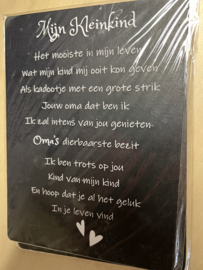 Mijn Kleinkind
Het mooiste in mijn leven
Wat mijn kind mij ooit kon geven
Als kadootje met een grote strik
Jouw oma dat ben ik
Ik zal intens van jou genieten
Oma's dierbaarste bezit
Ik ben trots op jou
Kind van mijn kind
En hoop dat je al het geluk
In je leven vind